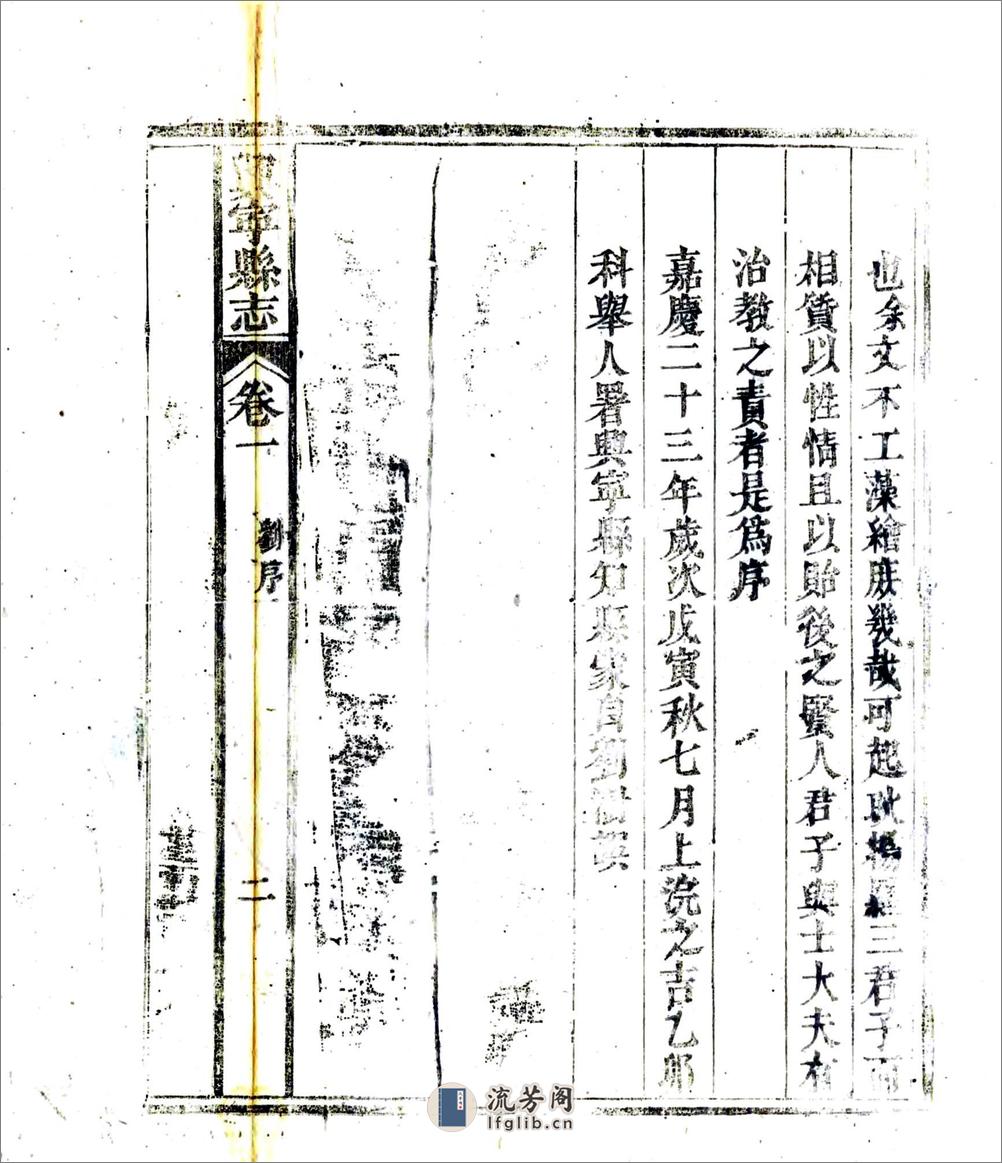 也余文不工藻繪庶幾哉可起耿楊三君子而
相質以性情且以貽後之賢人君子與士大夫有
治教之責者是爲序
嘉慶二十三年歲次戊寅秋七月上浣之吉乙卯
科舉人署興寧縣知縣家
興寧縣志
卷一
劉序
二
流芳阁
lfglib.cn